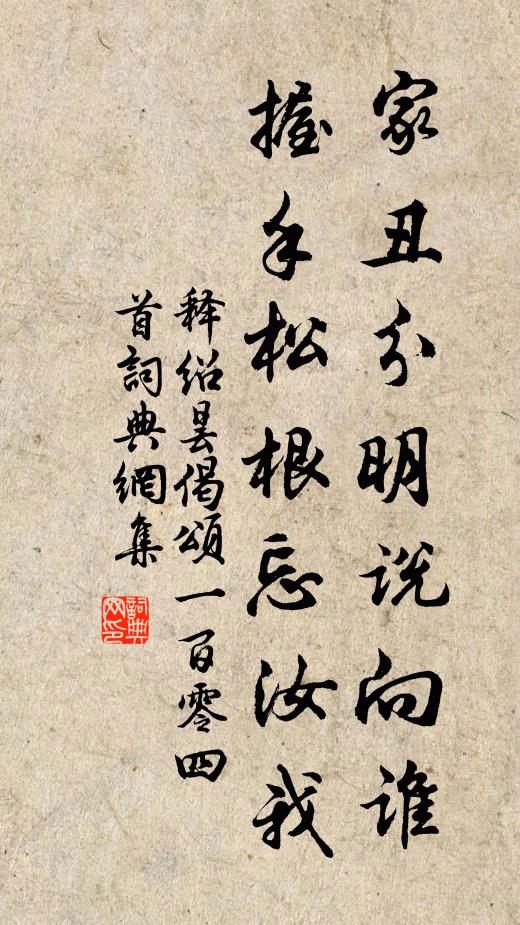 家丑分明说向谁
握手松根忘汝我
释绍昙偈颂一百零四
首詞典網集
詞典
网印